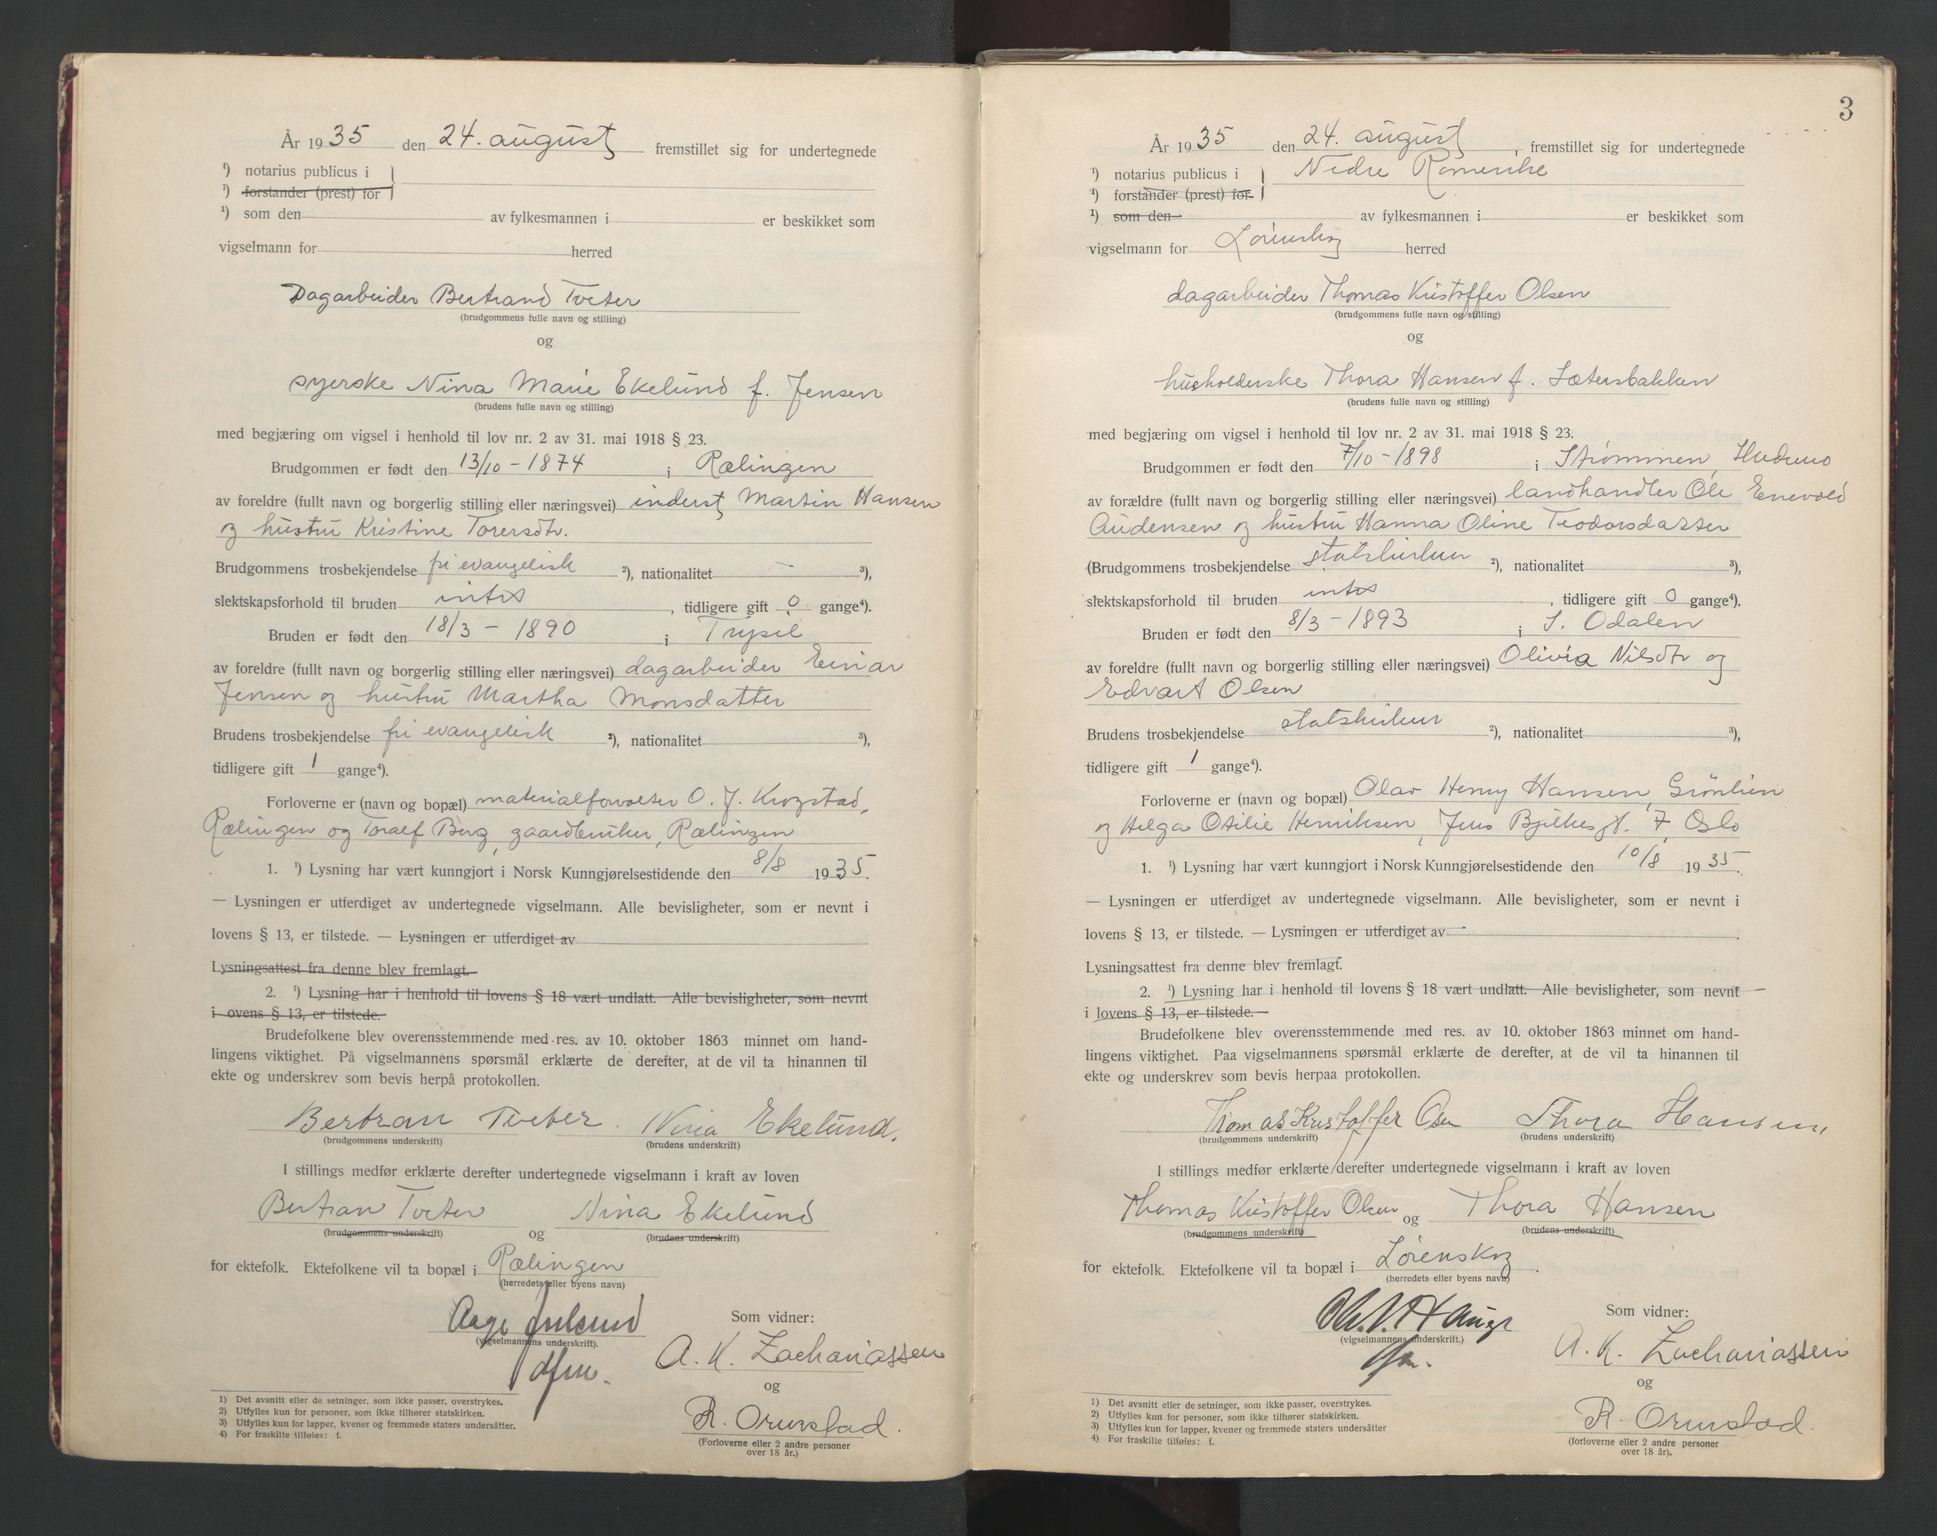 År 1935 den 24. august fremstillet sig for undertegnede
¹) notarius publicus i
¹) forstander (prest) for
¹) som den av fylkesmannen i er beskikket som
vigselmann for herred
Dagarbeider Bertrand Tveter
(brudgommens fulle navn og stilling)
og
syerske Nina Marie Ekelund f. Jensen
(brudens fulle navn og stilling)
med begjæring om vigsel i henhold til lov nr. 2 av 31. mai 1918 § 23.
Brudgommen er født den 13/10 - 1874 i Rælingen
av foreldre (fullt navn og borgerlig stilling eller næringsvei) inderst Martin Hansen
og hustru Kristine Torersdtr.
Brudgommens trosbekjendelse fri evangelisk ²), nationalitet - ³),
slektskapsforhold til bruden intet, tidligere gift 0 gange⁴).
Bruden er født den 18/3 - 1890 i Trysil
av foreldre (fullt navn og borgerlig stilling eller næringsvei) dagarbeider Einar
Jensen og hustru Martha Monsdatter
Brudens trosbekjendelse fri evangelisk ²), nationalitet ³),
tidligere gift 1 gange⁴).
Forloverne er (navn og bopæl) materialforvalter O. J. Krogstad,
Rælingen og Toralf Berg, gaardbruker, Rælingen
1. ¹) Lysning har vært kunngjort i Norsk Kunngjørelsestidende den 8/8 1935.
— Lysningen er utferdiget av undertegnede vigselmann. Alle bevisligheter, som er nevnt i
lovens § 13, er tilstede. — Lysningen er utferdiget av
Lysningsattest fra denne blev fremlagt.
2. ¹) Lysning har i henhold til lovens § 18 vært undlatt. Alle bevisligheter, som nevnt
i ovens § 13, er tilstede.
Brudefolkene blev overensstemmende med res. av 10. oktober 1863 minnet om hand-
lingens viktighet. På vigselmannens spørsmål erklærte de derefter, at de vil ta hinannen til
ekte og underskrev som bevis herpå protokollen.
Bertran Tveter. Nina Ekelund.
(brudgommens underskrift) (brudens underskrift)
I stillings medfør erklærte derefter undertegnede vigselmann i kraft av loven
Bertran Tveter og Nina Ekelund
(brudgommens underskrift) (brudens underskrift)
for ektefolk. Ektefolkene vil ta bopæl i Rælingen
(herredets eller byens navn)
Aage
(vigselmannens underskrift)
Som vidner:
A. K. Zachariassen
og
R. Ormstad.
(Forloverne eller 2 andre personer
over 18 år.)
1) Det avsnitt eller de setninger, som ikke passer, overstrykes.
2) Utfylles kun for personer, som ikke tilhører statskirken.
3) Utfylles kun for lapper, kvener og fremmede staters undersåtter.
4) For fraskilte tilføies: f.
3
År 1935 den 24. august, fremstillet sig for undertegnede
¹) notarius publicus i Nedre Romerike
¹) forstander (prest) for
¹) som den av fylkesmannen i er beskikket som
vigselmann for Lørenskog herred
dagarbeider Thomas Kristoffer Olsen
(brudgommens fulle navn og stilling)
og
husholderske Thora Hansen f. Sætersbakken
(brudens fulle navn og stilling)
med begjæring om vigsel i henhold til lov nr. 2 av 31. mai 1918 § 23.
Brudgommen er født den 7/10 - 1898 i Strømmen,
av forældre (fullt navn og borgerlig stilling eller næringsvei) landhandler Ole Enevold
Audensen og hustru Hanna Oline Teodorsdatter
(Brudgommens trosbekjendelse statskirken ²), nationalitet ³),
slektskapsforhold til bruden intet, tidligere gift 0 gange⁴).
Bruden er født den 8/3 - 1893 i S. Odalen
av foreldre (fullt navn og borgerlig stilling eller næringsvei) Olivia Nilsdtr og
Edvart Olsen
Brudens trosbekjendelse statskirken ²), nationalitet ³),
tidligere gift 1 gange⁴).
Forloverne er (navn og bopæl) Olav Henry Hansen, Grönlien
og Helga Otilie Henriksen, Jens Bjelkesgt. 7, Oslo
1. ¹) Lysning har vært kunngjort i Norsk Kunngjørelsestidende den 10/8 1935.
— Lysningen er utferdiget av undertegnede vigselmann. Alle bevisligheter, som er nevnt i
lovens § 13, er tilstede. — Lysningen er utferdiget av
Lysningsattest fra denne blev fremlagt.
2. ¹) Lysning har i henhold til lovens § 18 vært undlatt. Alle bevisligheter, som nevnt
i lovens § 13, er tilstede.
Brudefolkene blev overensstemmende med res. av 10. oktober 1863 minnet om hand-
lingens viktighet. Paa vigselmannens spørsmål erklærte de derefter, at de vil ta hinannen til
ekte og underskrev som bevis herpaa protokollen.
Thomas Kristoffer Olsen Thora Hansen,
(brudgommens underskrift) (brudens underskrift)
I stillings medfør erklærte derefter undertegnede vigselmann i kraft av loven
Thomas Kristoffer Olsen og Thora Hansen
(brudgommens underskrift) (brudens underskrift)
for ektefolk. Ektefolkene vil ta bopæl i Lørenskog.
(herredets eller byens navn)
(vigselmannens underskrift.)
Som vidner:
A. K. Zachariassen
og
R. Ormstad.
(forloverne eller 2 andre personer
over 18 år).
1) Det avsnitt eller de setninger, som ikke passer, overstrykes.
2) Utfylles kun for personer, som ikke tilhører statskirken.
3) Utfylles kun for lapper, kvener og fremmede staters undersåtter
4) For fraskilte tilføies: f.